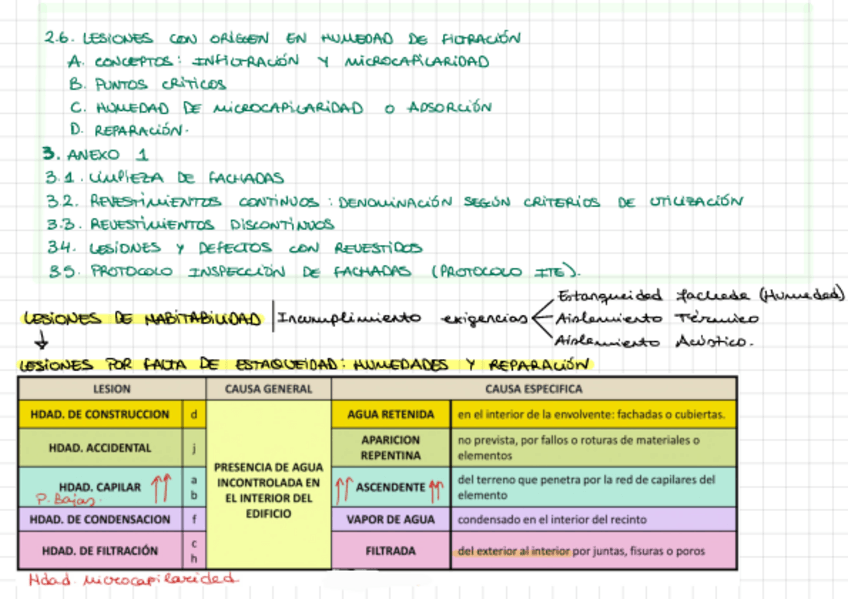 2.6. LESIONES CON ORIGEN EN HUMEDAD DE FILTRACIÓN
A. CONCEPTOS: INFILTRACIÓN Y MICROCAPILARIDAD
B. PUNTOS CRÍTICOS
C. HUMEDAD DE MICROCAPILARIDAD O ADSORCIÓN
D. REPARACIÓN.
3. ANEXO 1
3.1. LIMPIEZA DE FACHADAS
3.2. REVESTIMIENTOS CONTINUOS: DENOMINACIÓN SEGÚN CRITERIOS DE UTILIZACIÓN
3.3. REVESTIMIENTOS DISCONTINUOS
3.4. LESIONES Y DEFECTOS CON REVESTIDOS
3.5. PROTOCOLO INSPECCIÓN DE FACHADAS (PROTOCOLO ITE).
Estanqueidad fachada (Humedad)
LESIONES DE HABITABILIDAD | Incumplimiento exigencias Aislamiento Térmico
Aislamiento Acústico.
↓
LESIONES POR FALTA DE ESTAQUEIDAD: HUMEDADES Y REPARACIÓN
LESION CAUSA GENERAL CAUSA ESPECIFICA
HDAD. DE CONSTRUCCION d AGUA RETENIDA en el interior de la envolvente: fachadas o cubiertas.
HDAD. ACCIDENTAL j APARICION REPENTINA no prevista, por fallos o roturas de materiales o elementos
PRESENCIA DE AGUA INCONTROLADA EN EL INTERIOR DEL EDIFICIO
HDAD. CAPILAR ↑↑ a b ↑↑ ASCENDENTE ↑↑ del terreno que penetra por la red de capilares del elemento
P. Bajas.
HDAD. DE CONDENSACION f VAPOR DE AGUA condensado en el interior del recinto
HDAD. DE FILTRACIÓN c h FILTRADA del exterior al interior por juntas, fisuras o poros
Hdad. microcapilaridad